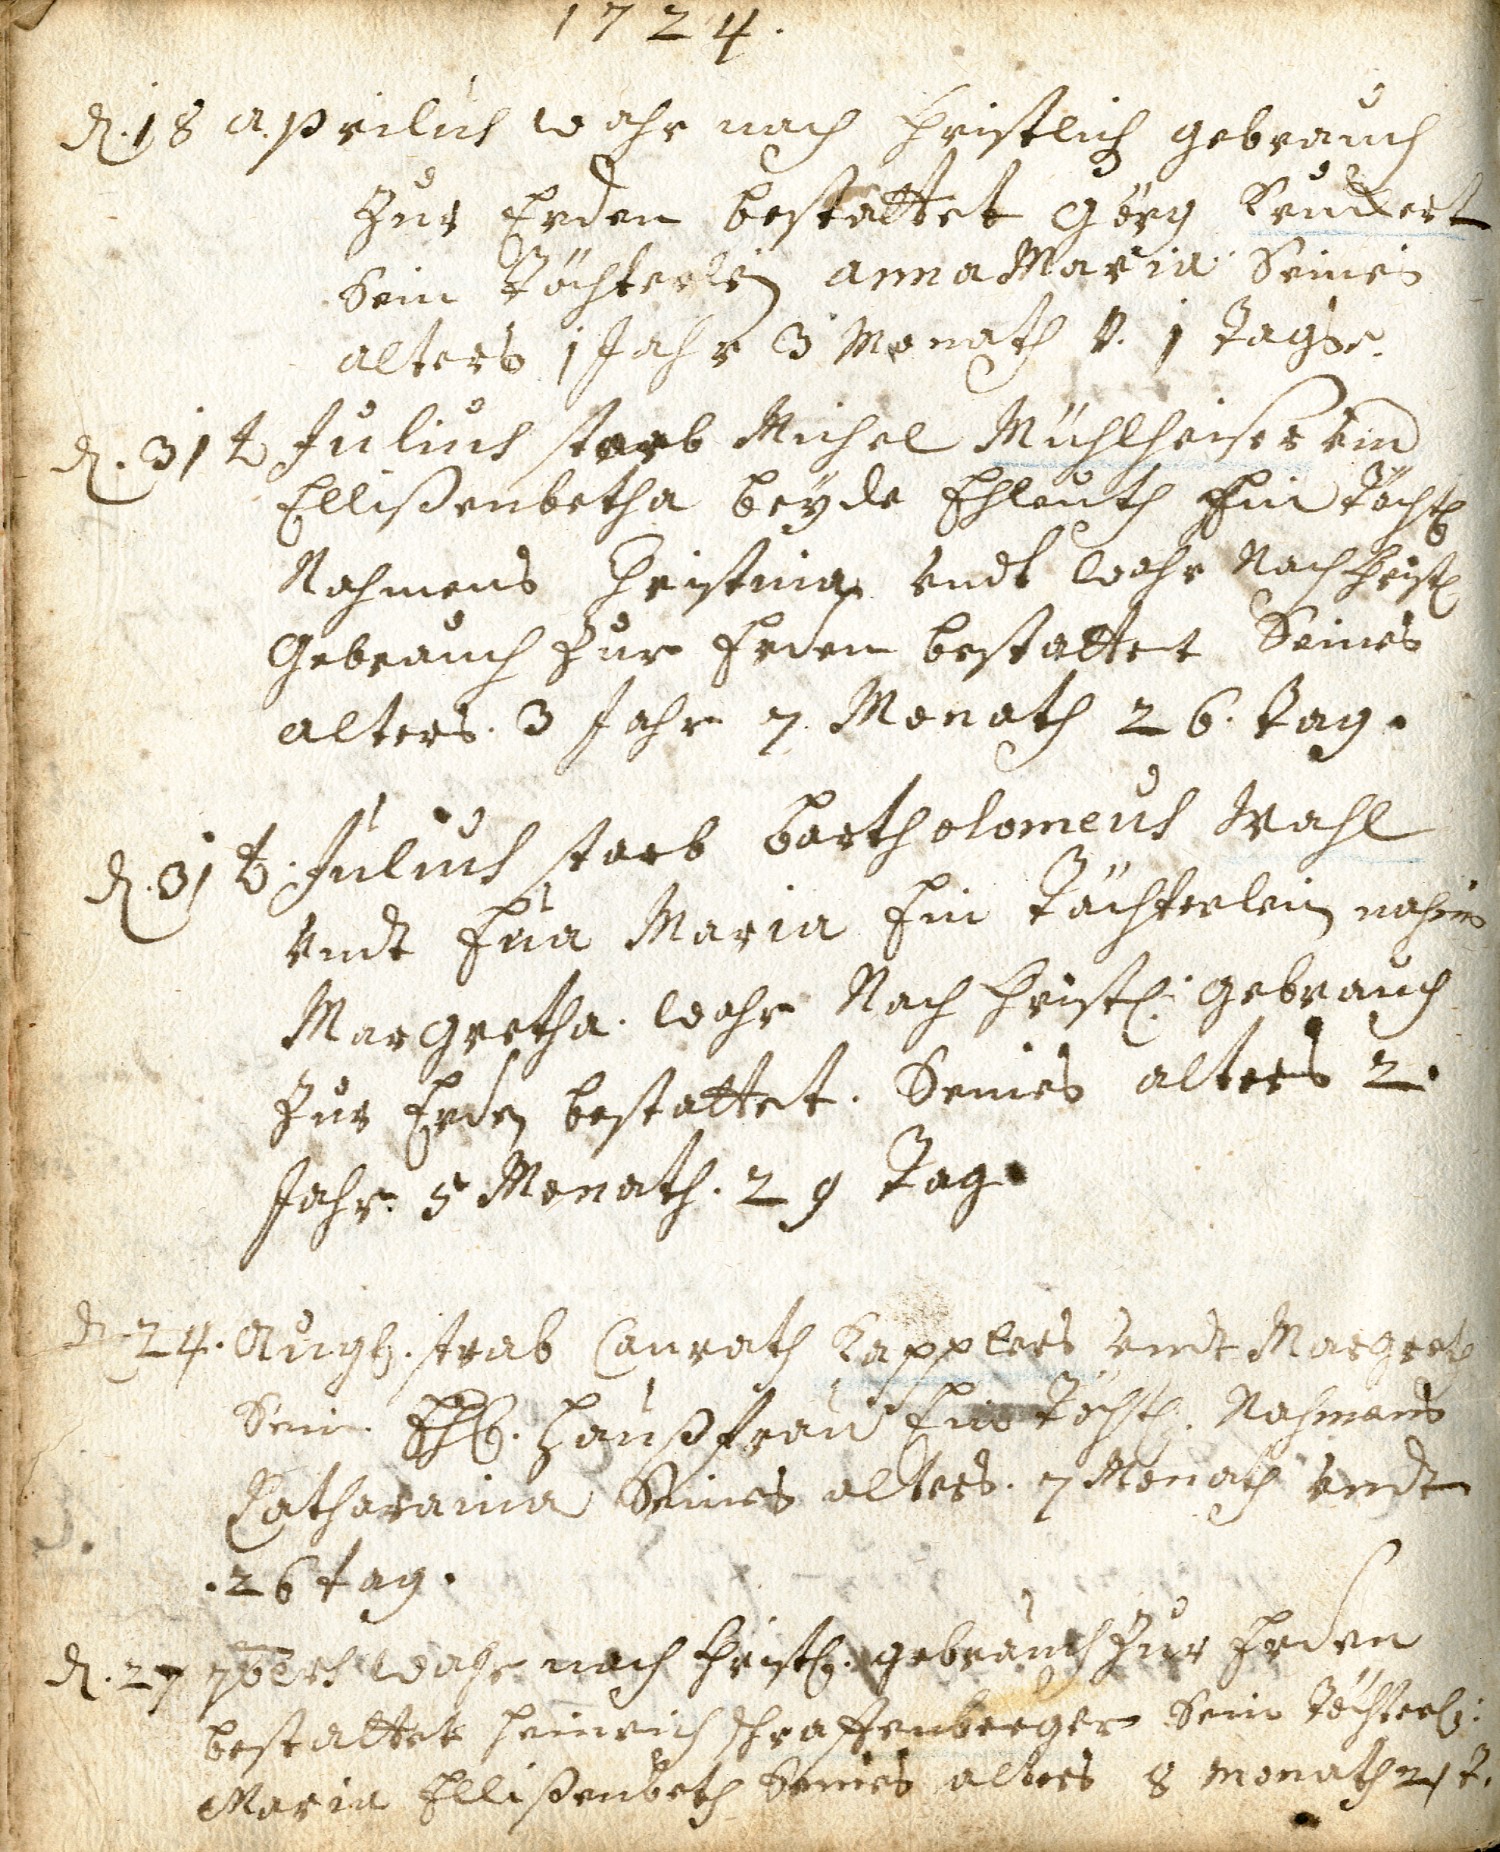 1724.
d. 18 Aprilus wahr nach christlich gebrauch
Zur Erden bestattet Görg Kruckert
Sein Töchterlein anna Maria Seines
alters 1 Jahr 3 Monath v. 1 Tage.
d. 31 t Julius starb Michel Mühlheiser
Ellißenbetha beyde Ehleuth Ein Töchtl
Nahmens Christina vndt wahr Nach Christl
Gebrauch Zur Erden bestattet Seines
alters. 3 Jahr 7 Monath 26. tag.
d. 31 t. Julius starb bartholomeus Wahl
vndt Eua Maria Ein Töchterlein nahmens
Margretha. wahr Nach Christl. gebrauch
Zur Erden bestattet. Seines alters 2.
Jahr. 5 Monath. 29 Tag.
d. 24. Augl. strab Canrath Kapplers vndt Margreth
Sein Ehl. Haußfrau Ein Töchtl. Nahmens
Catharaina Seines alters. 7 Monath vndt
.26 tag.
d. 27 7bers wahr nach Christl. gebrauch Zur Erden
bestattet Heinrich Sein Töchterl:
Maria Ellißenbeth Seines alters 8 monath 21 t.